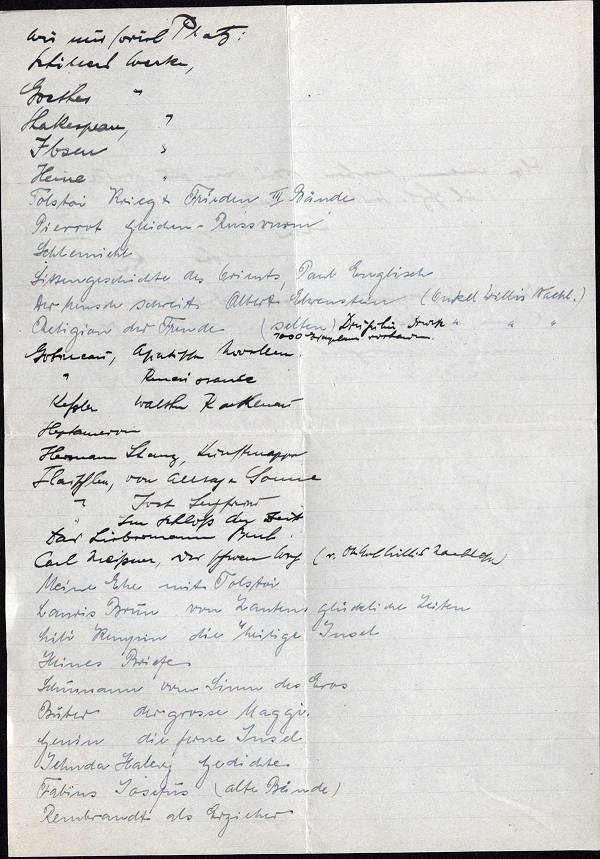 wir nur soviel Platz:
Schillers Werke,
Goethes "
Shakespeare, "
Ibsen "
Heine "
Tolstoi Krieg & Frieden III Bände
Pierrot
Schlemiehl
Sittengeschichte des Orients, Paul Englisch
Der Mensch schreit Albert Ehrenstein (Onkel Willis Nachl.)
Religion der Freude (selten) " " "
1000 Exemplare vorhanden.
Gobineau, Asiatische Novellen
" Renaissance
Kessler Walther Rathenau
Heptameron
Hermann Stang,
Flaischlen, von Alltag & Sonne
" Jost Seyfried
" Im Schloß der Zeit
Das Liebermann Buch
Carl Meißner, der (v. Onkel Willis Nachlass)
Meine Ehe mit Tolstoi
Lauris Brun van Zantens glückliche Zeiten
die heilige Insel
Heines Briefe
Schumann vom Sinn des Eros
Buber der grosse Maggid
die ferne Insel
Jehuda Halevy Gedichte
Flabius Josefus (alte Bände)
Rembrandt als Erzieher